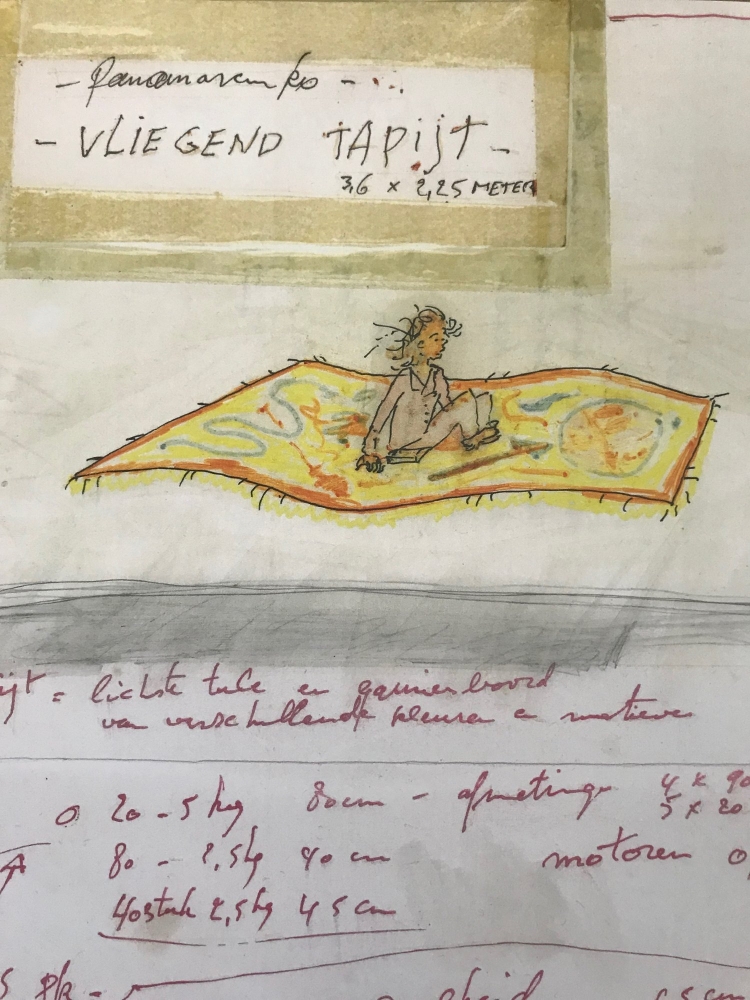 - Panamarenko -
- VLIEGEND TAPijT -
3,6 x 2,25 METER
ijt = lichste tule en
van verschillende kleuren en motieven
20 - 5 kg 80 cm - afmetinge 4 x 90
5 x 20
80 - 2,5 kg 40 cm motoren 0,
40 stuk 2,5 kg 45 cm
5 pk -